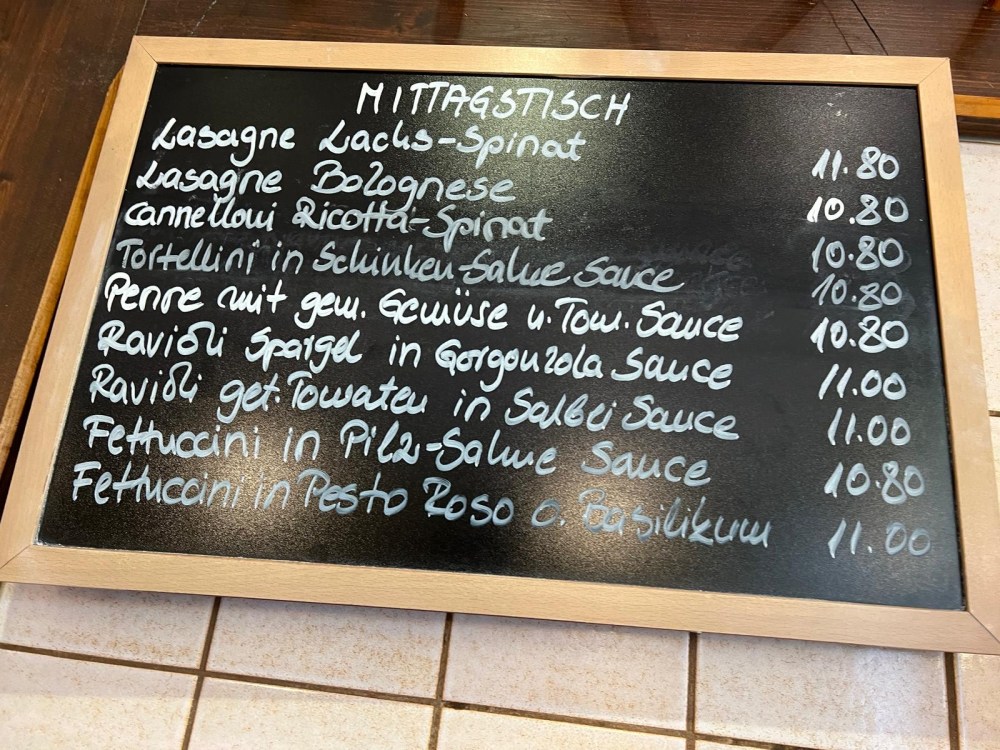 MITTAGSTISCH
Lasagne Lachs-Spinat 11.80
Lasagne Bolognese 10.80
Cannelloni Ricotta-Spinat 10.80
Tortellini in Schinken-Sahne Sauce 10.80
Penne mit gem. Gemüse u. Tom. Sauce 10.80
Ravioli Spargel in Gorgonzola Sauce 11.00
Ravioli get. Tomaten in Salbei Sauce 11.00
Fettuccini in Pilz-Sahne Sauce 10.80
Fettuccini in Pesto Roso o. Basilikum 11.00